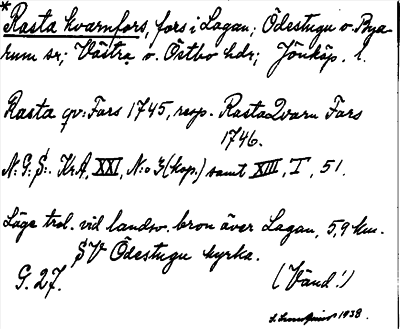 * Rasta kvarnfors, fors i Lagan; Ödestugu o. Bya-
rum sr; Västra o. Östbo hdr; Jönköp. l.
Rasta qv: Fars 1745, resp. Rasta Qvarn Fars
1746.
N: G: S: KrA, XXI, N:o 3 (kop.) samt XIII, I, 51.
Läge trol. vid landsv. bron över Lagan, 5,9 km.
SV Ödestugu kyrka.
G. 27. (Vänd!)
1938.